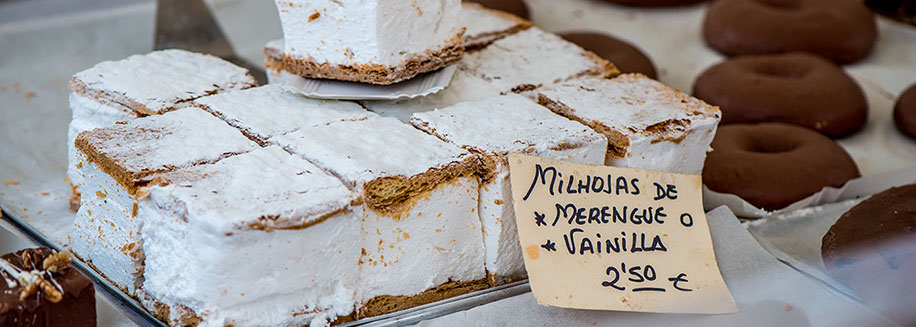 MILHOJAS DE
* MERENGUE O
* VAINILLA
2'50 €